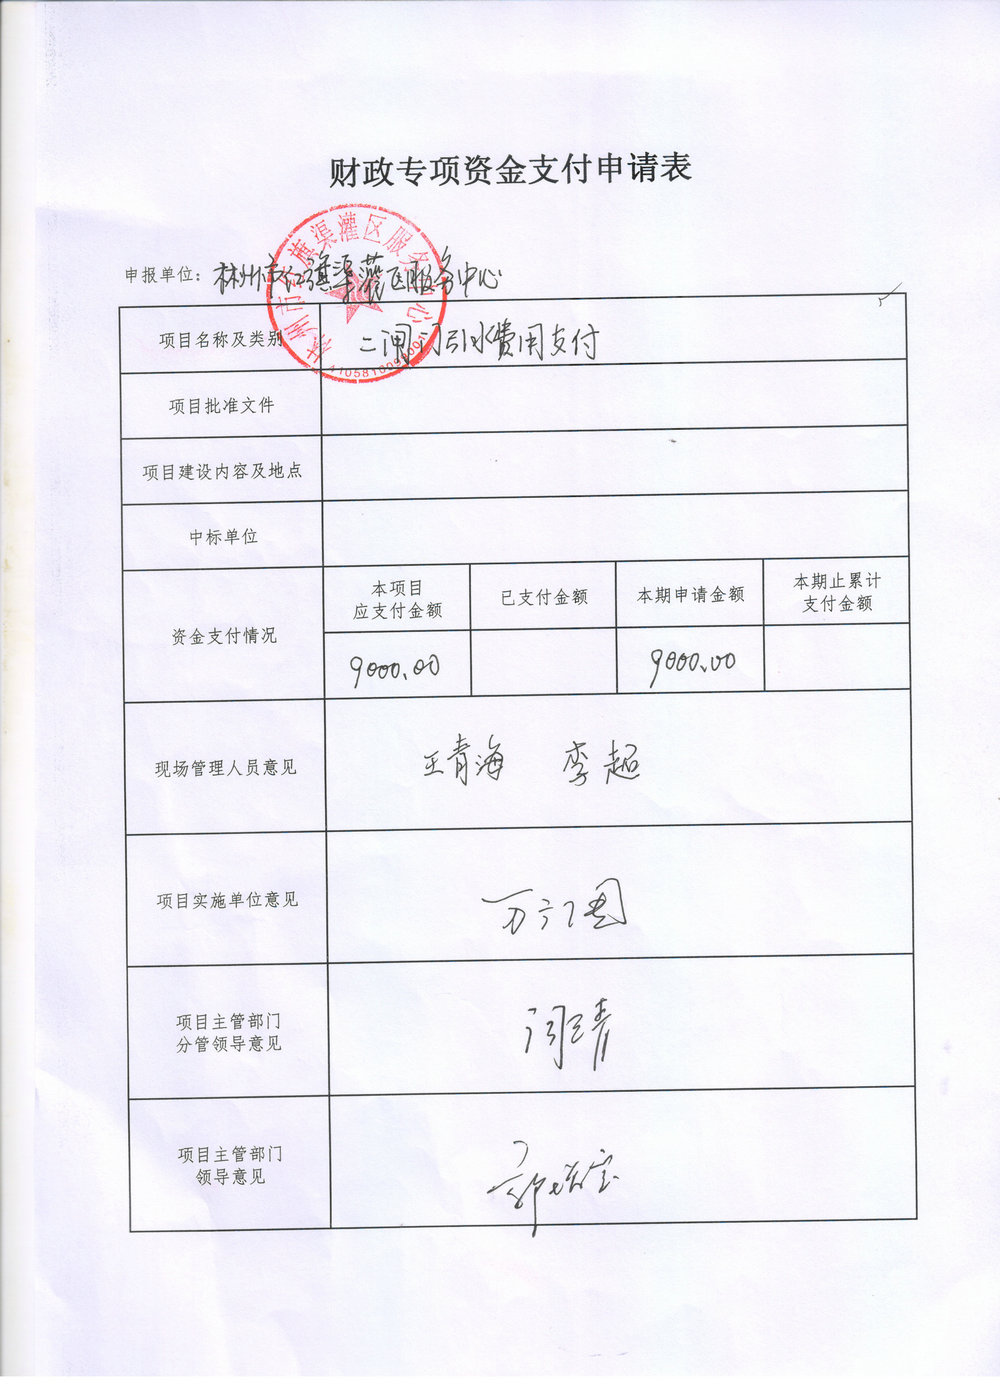 财政专项资金支付申请表
林州市红旗渠灌区服务中心
申报单位：林州市红旗渠灌区服务中心
项目名称及类别 二闸门引水费用支付
项目批准文件
项目建设内容及地点
中标单位
资金支付情况
本项目 应支付金额 已支付金额 本期申请金额 本期止累计 支付金额
9000.00 9000.00
现场管理人员意见 王青海 李超
项目实施单位意见
项目主管部门
分管领导意见
项目主管部门
领导意见